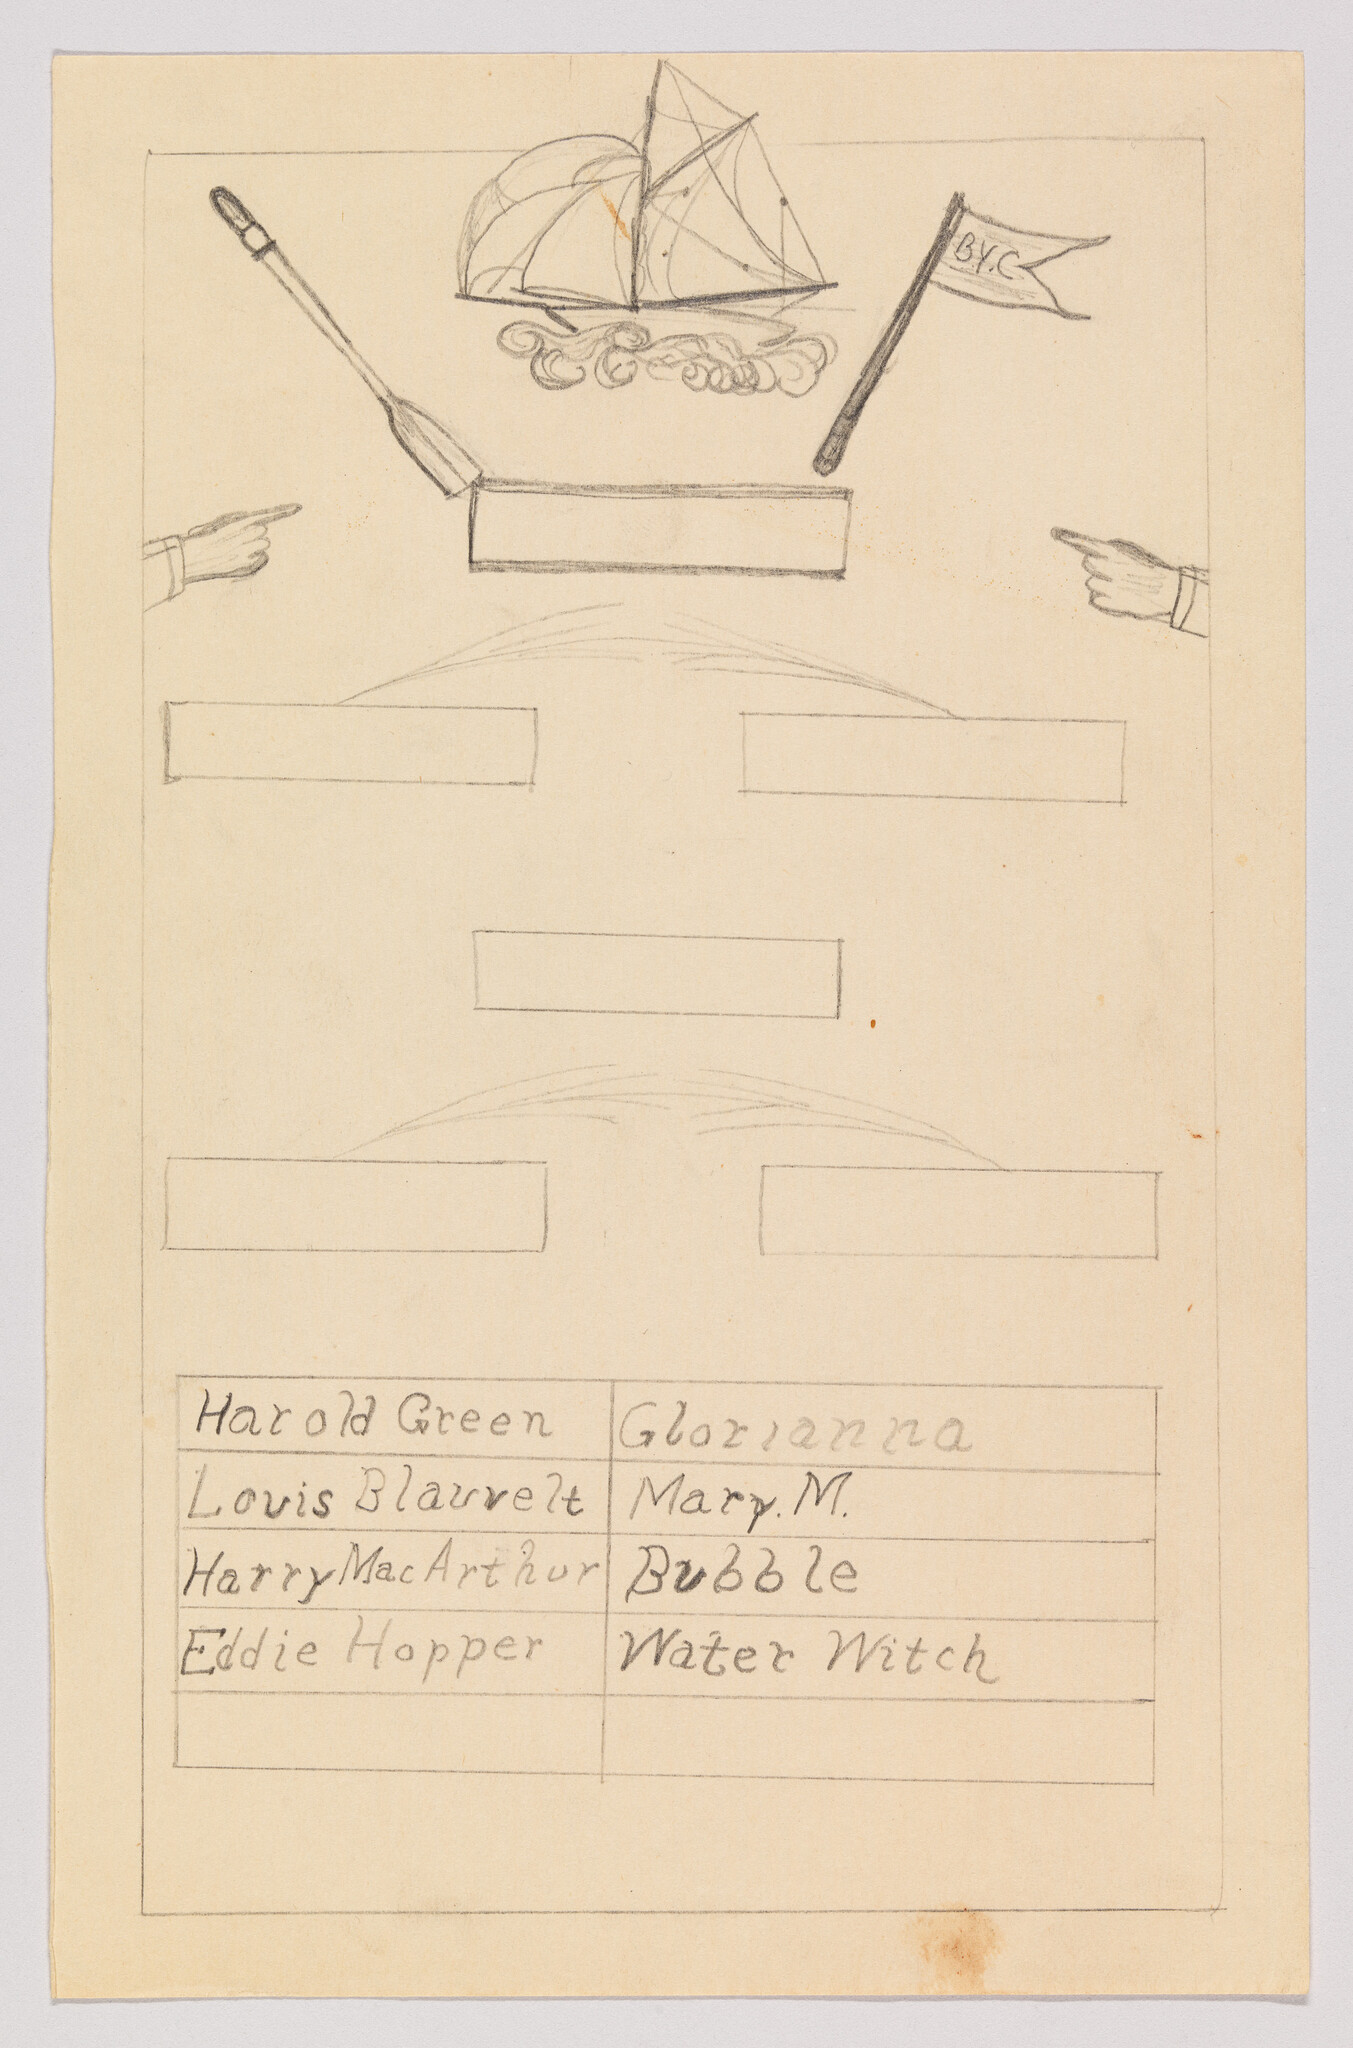 B.Y.C
Harold Green Glorianna
Louis Blauvelt Mary. M.
Harry MacArthur Bubble
Eddie Hopper Water Witch